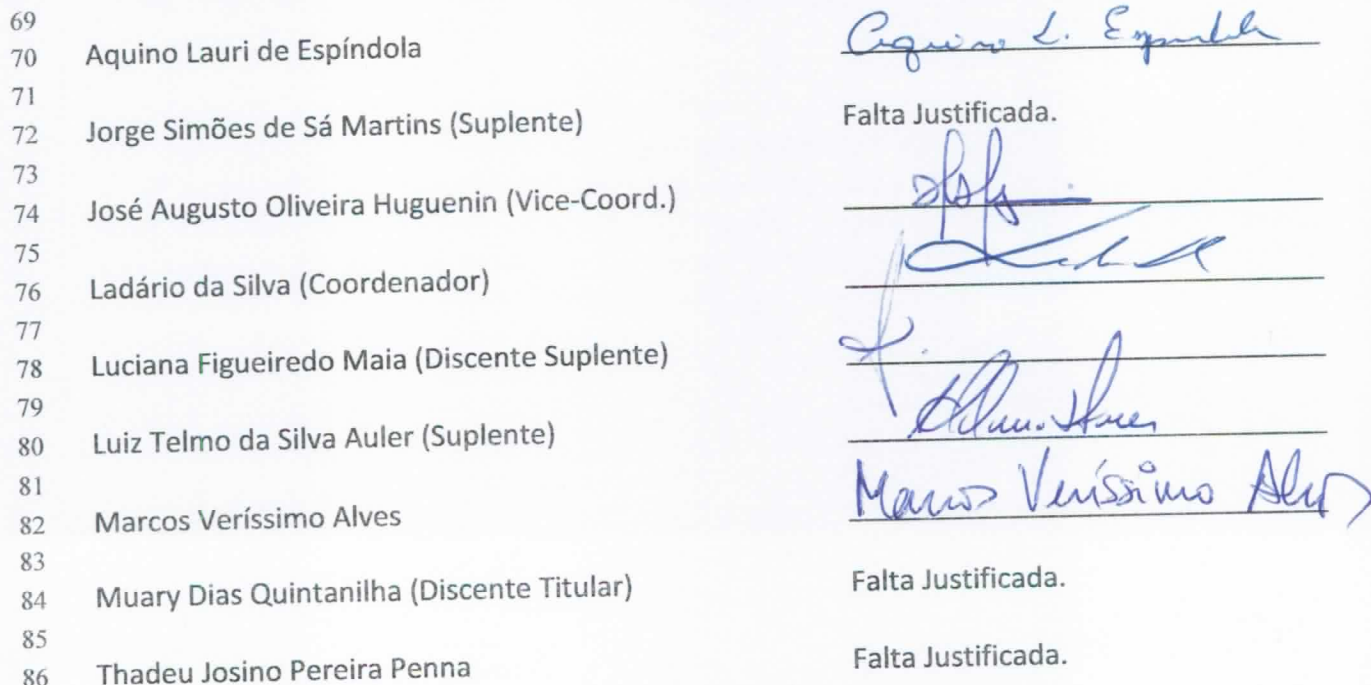 69
70 Aquino Lauri de Espíndola Aquino L. Espíndola
71
72 Jorge Simões de Sá Martins (Suplente) Falta Justificada.
73
74 José Augusto Oliveira Huguenin (Vice-Coord.)
75
76 Ladário da Silva (Coordenador)
77
78 Luciana Figueiredo Maia (Discente Suplente)
79
80 Luiz Telmo da Silva Auler (Suplente)
81
82 Marcos Veríssimo Alves Marcos Veríssimo Alves
83
84 Muary Dias Quintanilha (Discente Titular) Falta Justificada.
85
86 Thadeu Josino Pereira Penna Falta Justificada.